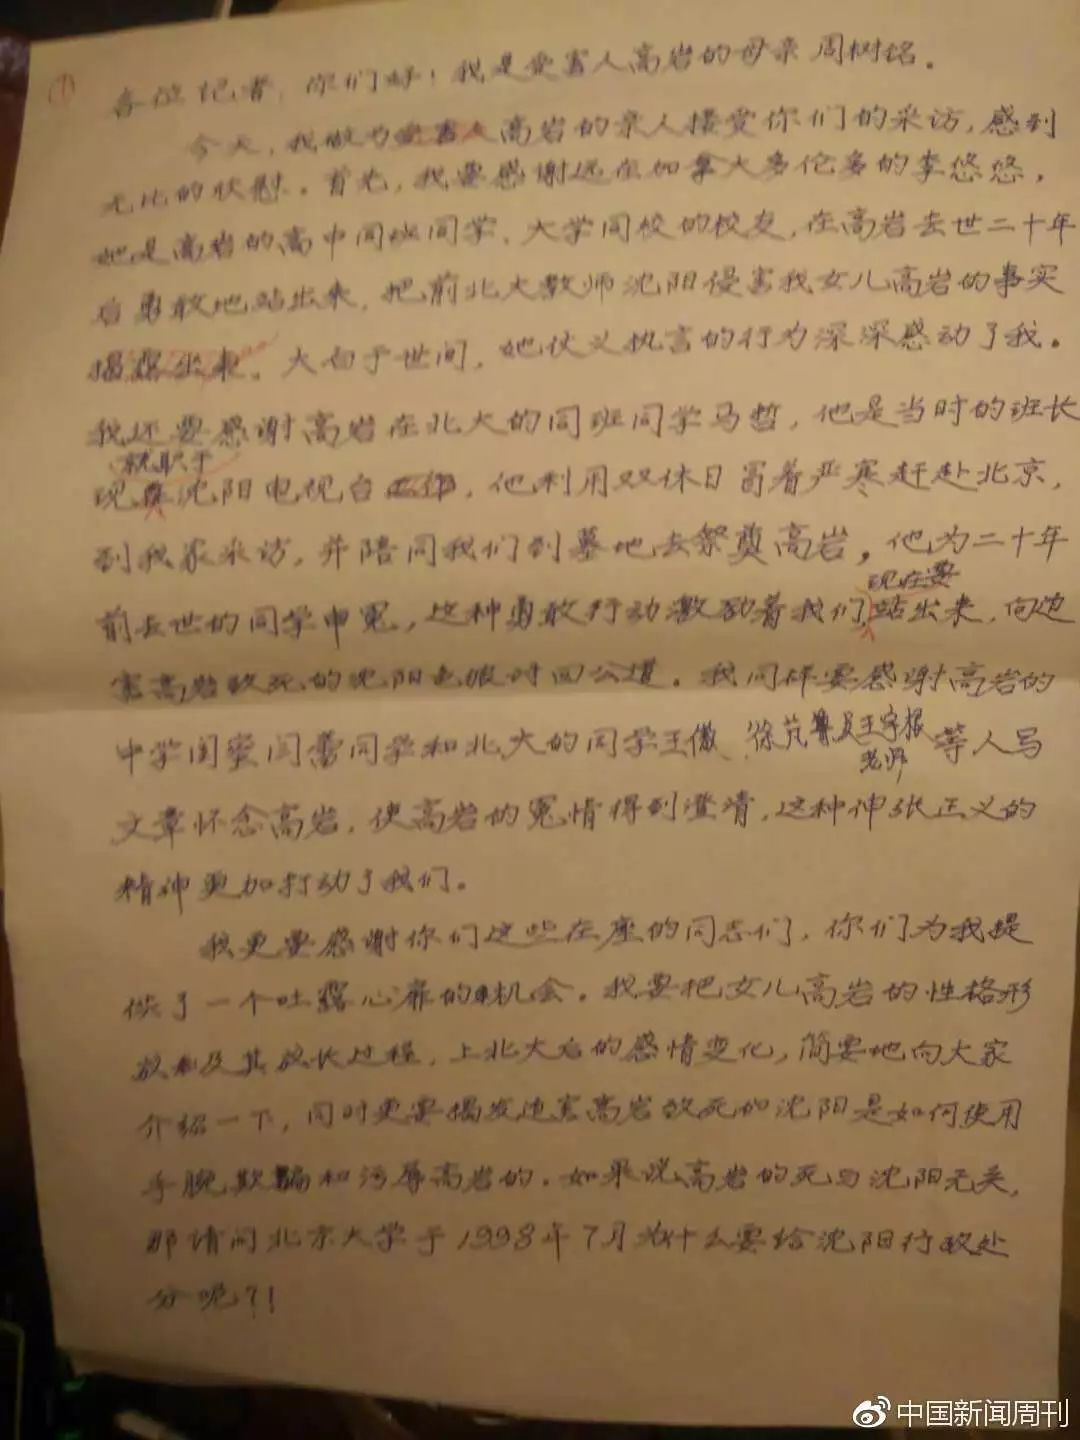 ①
各位记者，你们好！我是受害人高岩的母亲周树铭。
今天，我做为受害人高岩的亲人接受你们的采访，感到
无比的欣慰。首先，我要感谢远在加拿大多伦多的李悠悠，
她是高岩的高中同班同学、大学同校的校友，在高岩去世二十年
后勇敢地站出来，把前北大教师沈阳侵害我女儿高岩的事实
揭露出来，大白于世间，她仗义执言的行为深深感动了我。
我还要感谢高岩在北大的同班同学马哲，他是当时的班长
就职于
现 沈阳电视台工作，他利用双休日冒着严寒赶赴北京，
到我家采访，并陪同我们到墓地去祭奠高岩，他为二十年
现在要
前去世的同学申冤，这种勇敢行动激励着我们站出来，向迫
害高岩致死的沈阳色狼讨回公道。我同样要感谢高岩的
中学闺蜜闫蕾同学和北大的同学王傲、徐芃 王宇根等人写
老师
文章怀念高岩，使高岩的冤情得到澄清，这种伸张正义的
精神更加打动了我们。
我更要感谢你们这些在座的同志们，你们为我提
供了一个吐露心扉的机会。我要把女儿高岩的性格形
成及其成长过程，上北大后的感情变化，简要地向大家
介绍一下，同时更要揭发迫害高岩致死的沈阳是如何使用
手腕欺骗和污辱高岩的。如果说高岩的死与沈阳无关，
那请问北京大学于1998年7月为什么要给沈阳行政处
分呢？！
中国新闻周刊